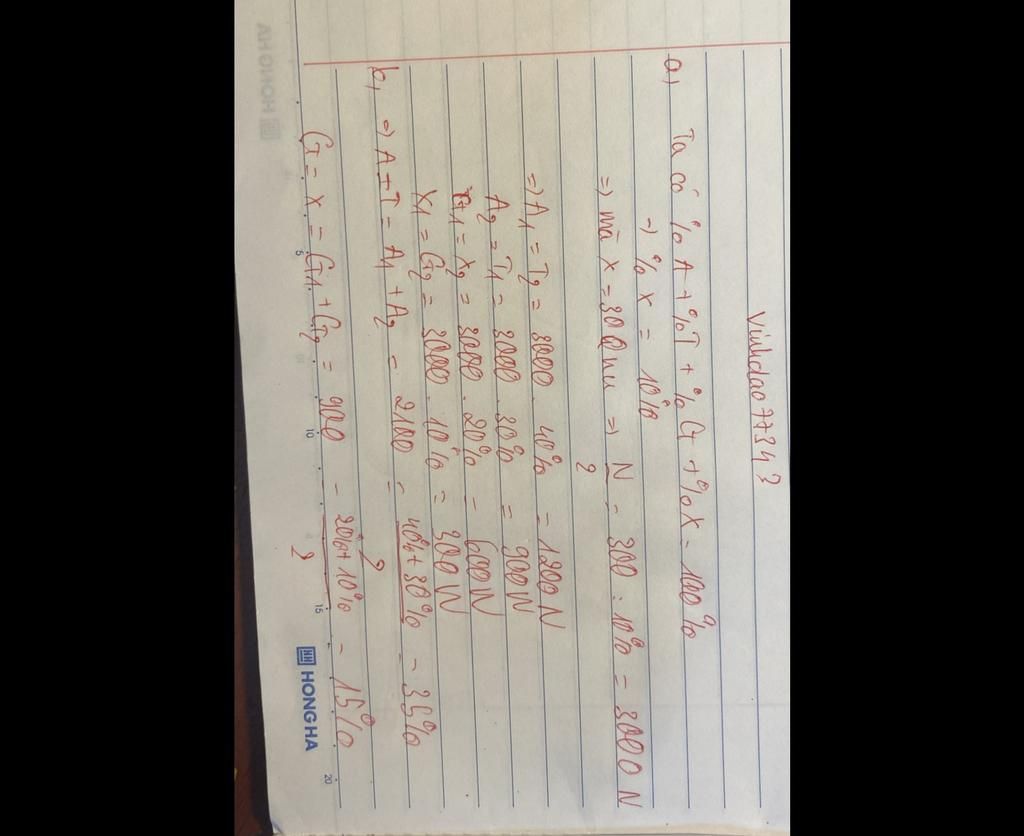 Vinhdao7734?
a, Ta có %A + %T + %G + %X = 100%
=) %X = 10%
=) mà X = 300nu =) N/2 = 300 : 10% = 3000 N
=) A1 = T2 = 3000 . 40% = 1200 N
A2 = T1 = 3000 . 30% = 900 N
G1 = X2 = 3000 . 20% = 600 N
X1 = G2 = 3000 . 10% = 300 N
b, =) A = T = A1 + A2 = 2100 = (40% + 30%)/2 = 35%
G = X = G1 + G2 = 900 = (20% + 10%)/2 = 15%
5 10 15 20
HONG HA
HONG HA